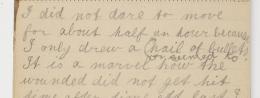 I did not dare to move
for about half an hour because
I only drew a hail of bullets
It is a marvel how the
wounded did not get hit
time after time